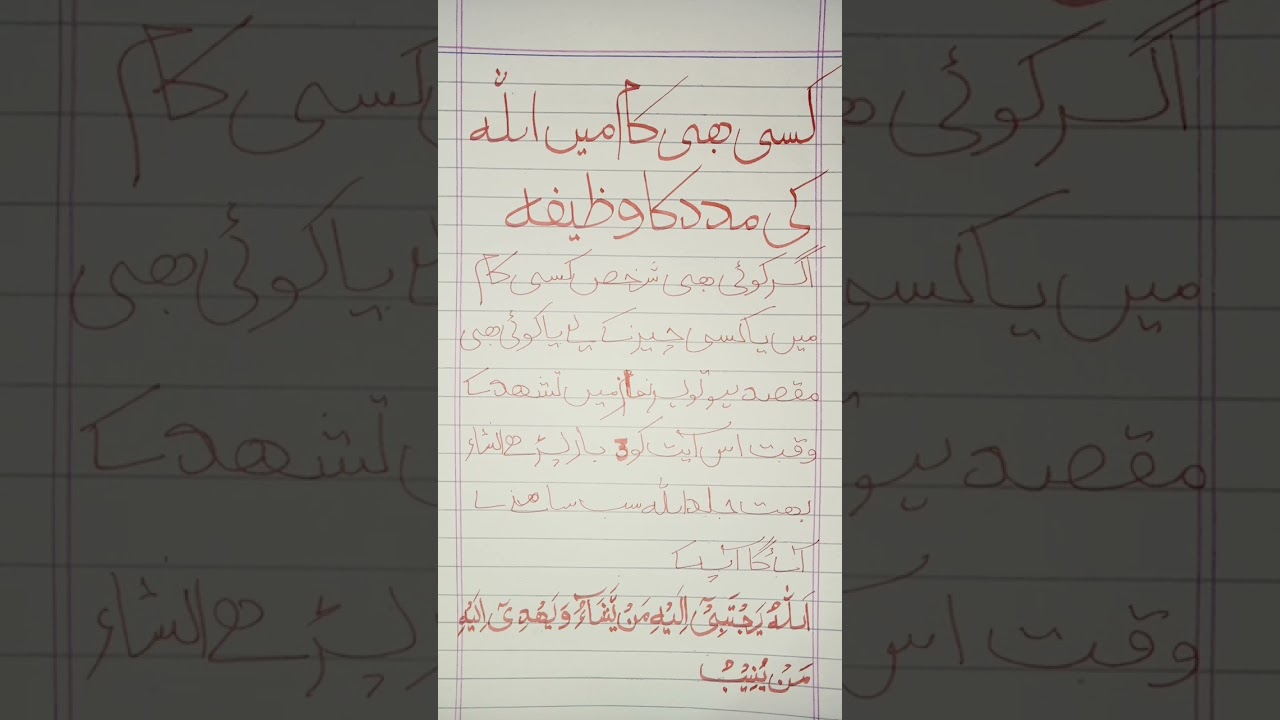 کسی بھی کام میں اللہ
کی مدد کا وظیفہ
اگر کوئی بھی شخص کسی کام
میں یا کسی چیز کے لیے یا کوئی بھی
مقصد ہو تو ہر نماز میں تشھد کے
وقت اس آیت کو 3 بار پڑھے انشاء
بہت جلد اللہ سب سامنے
آئے گا آپ کے
اَللّٰهُ يَجْتَبِىْٓ اِلَيْهِ مَنْ يَّشَآءُ وَيَهْدِىْٓ اِلَيْهِ
مَنْ يُّنِيْبُ